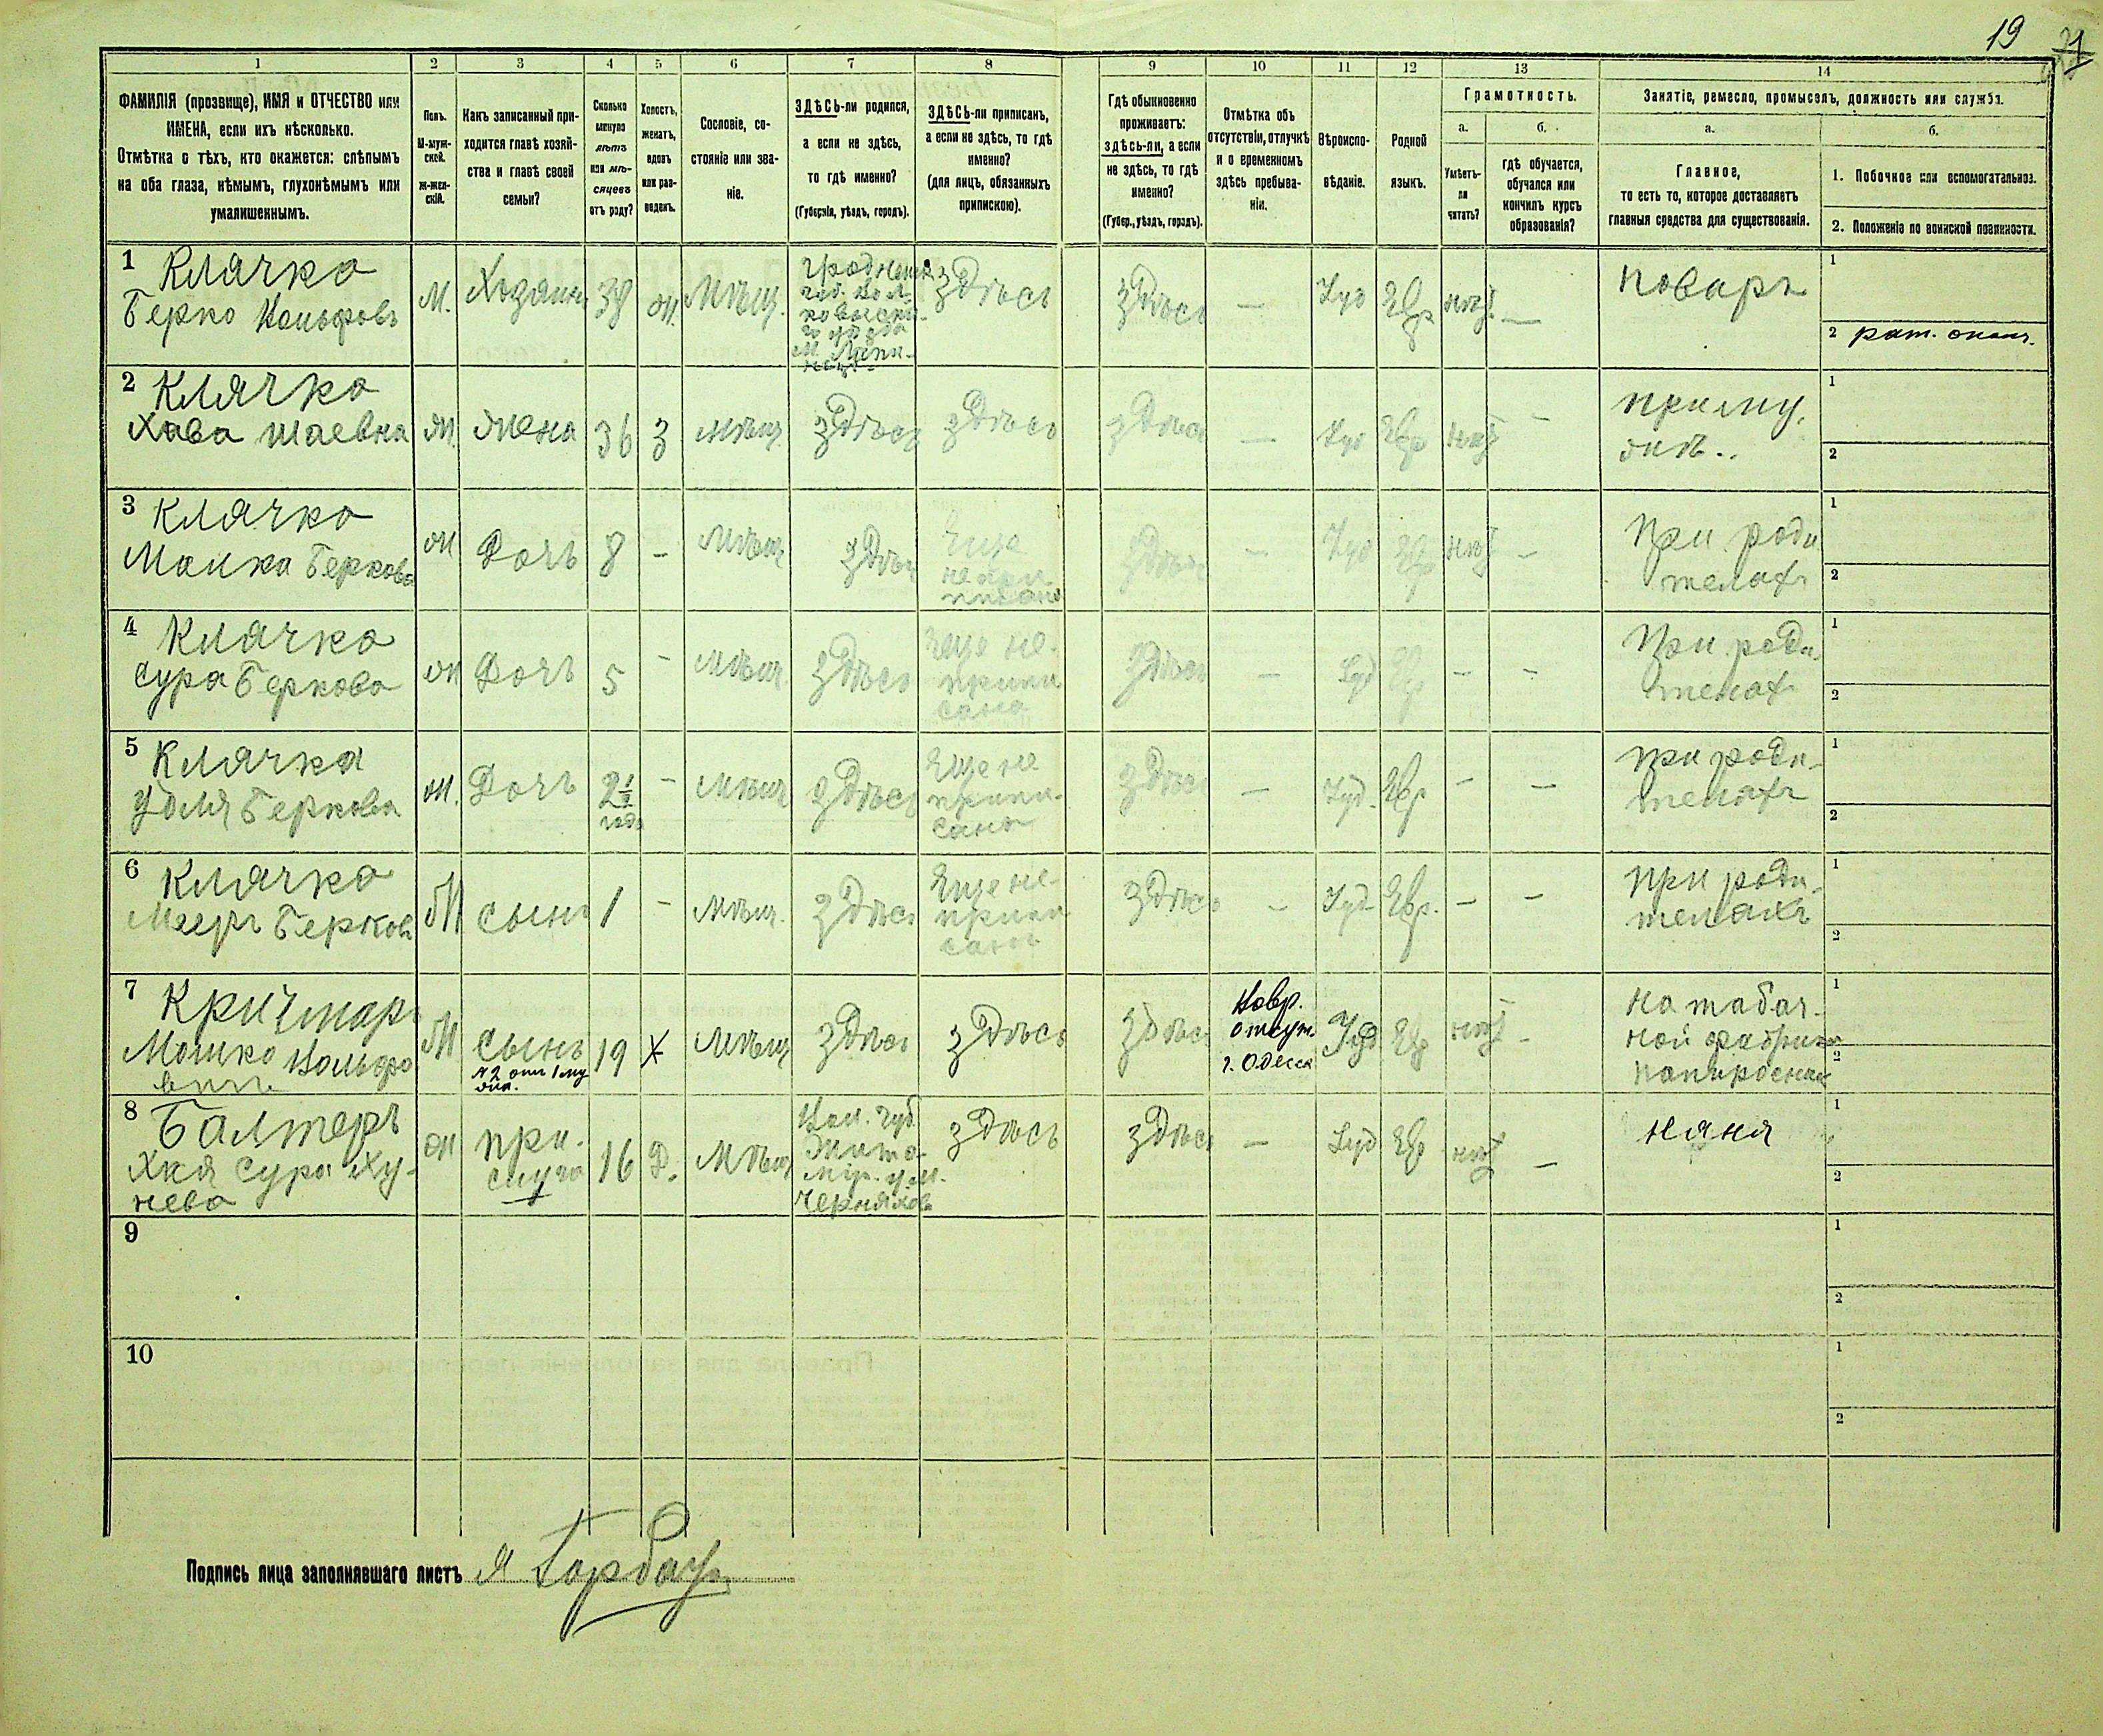 19
21
1
2
3
4
5
6
7
8
9
10
11
12
13
14
ФАМИЛІЯ (прозвище), ИМЯ и ОТЧЕСТВО или
ИМЕНА, если ихъ нѣсколько.
Отмѣтка о тѣхъ, кто окажется: слѣпымъ
на оба глаза, нѣмымъ, глухонѣмымъ или
умалишеннымъ.
Полъ.
М-муж-
ской.
ж-жен-
скій.
Какъ записанный при-
ходится главѣ хозяй-
ства и главѣ своей
семьи?
Сколько
минуло
лѣтъ
или мѣ-
сяцевъ
отъ роду?
Холостъ,
женатъ,
вдовъ
или раз-
веденъ.
Сословіе, со-
стояніе или зва-
ніе.
ЗДѢСЬ-ли родился,
а если не здѣсь,
то гдѣ именно?
(Губернія, уѣздъ, городъ).
ЗДѢСЬ-ли приписанъ,
а если не здѣсь, то гдѣ
именно?
(для лицъ, обязанныхъ
припискою).
Гдѣ обыкновенно
проживаетъ:
здѣсь-ли, а если
не здѣсь, то гдѣ
именно?
(Губер., уѣздъ, городъ).
Отмѣтка объ
отсутствіи, отлучкѣ
и о временномъ
здѣсь пребыва-
ніи.
Вѣроиспо-
вѣданіе.
Родной
языкъ.
Грамотность.
а.
б.
Умѣетъ-
ли
читать?
гдѣ обучается,
обучался или
кончилъ курсъ
образованія?
Занятіе, ремесло, промыселъ, должность или служба.
а.
б.
Главное,
то есть то, которое доставляетъ
главныя средства для существованія.
1. Побочное или вспомогательное.
2. Положеніе по воинской повинности.
1 Клячко
Берко Вольфовъ
М.
Хозяинъ
38
ж.
Мѣщ.
Гродненск.
губ. Вол-
ковыска-
го уѣзда
М.
здѣсь
здѣсь
—
Іуд
Евр
нѣт
—
поваръ
1
2 рат. опол.
2 Клячко
Хава Шаевна
ж
жена
36
З
мѣщ.
здѣсь
здѣсь
здѣсь
—
Іуд
Евр
нѣт
—
при му.
1
2
3 Клячко
Малка Беркова
ж
Дочь
8
-
Мѣщ
здѣсь
Еще
не при
писана
здѣсь
—
Іуд
Евр
нѣт
—
При роди
телахъ
1
2
4 Клячко
Сура Беркова
ж
Дочь
5
-
мѣщ.
здѣсь
Еще не-
припи
сана
здѣсь
—
Іуд
Евр
—
—
При роди.
телах
1
2
5 Клячка
Беркова
ж.
Дочь
2 1/2
года
-
мѣщ
здѣсь
Еще не
припи-
сана
здѣсь
—
Іуд.
Евр
—
—
при роди-
телахъ
1
2
6 Клячко
Мееръ Берков
М
сынъ
1
-
мѣщ.
здѣсь
Еще не-
припи
санъ
здѣсь
-
Іуд
Евр.
—
—
при роди-
телахъ
1
2
7 Кричмаръ
Мошко Вольфо
вичъ
М
сынъ
№ 2 отъ 1 му
жа.
19
Х
мѣщ
здѣсь
здѣсь
здѣсь
Новр.
отсут.
г. Одесса
Іуд
Евр
нѣт
-
на табач-
ной фабрик
папиросник
1
2
8 Балтеръ
Хкя Сура Ху-
нева
ж
при-
слуга
16
Д.
Мѣщ
Вол. губ.
Жито-
мір. у. м.
Черняхов
здѣсь
здѣсь
—
Іуд
Евр
нѣт
—
няня
1
2
9
1
2
10
1
2
Подпись лица заполнявшаго листъ Я Горбач